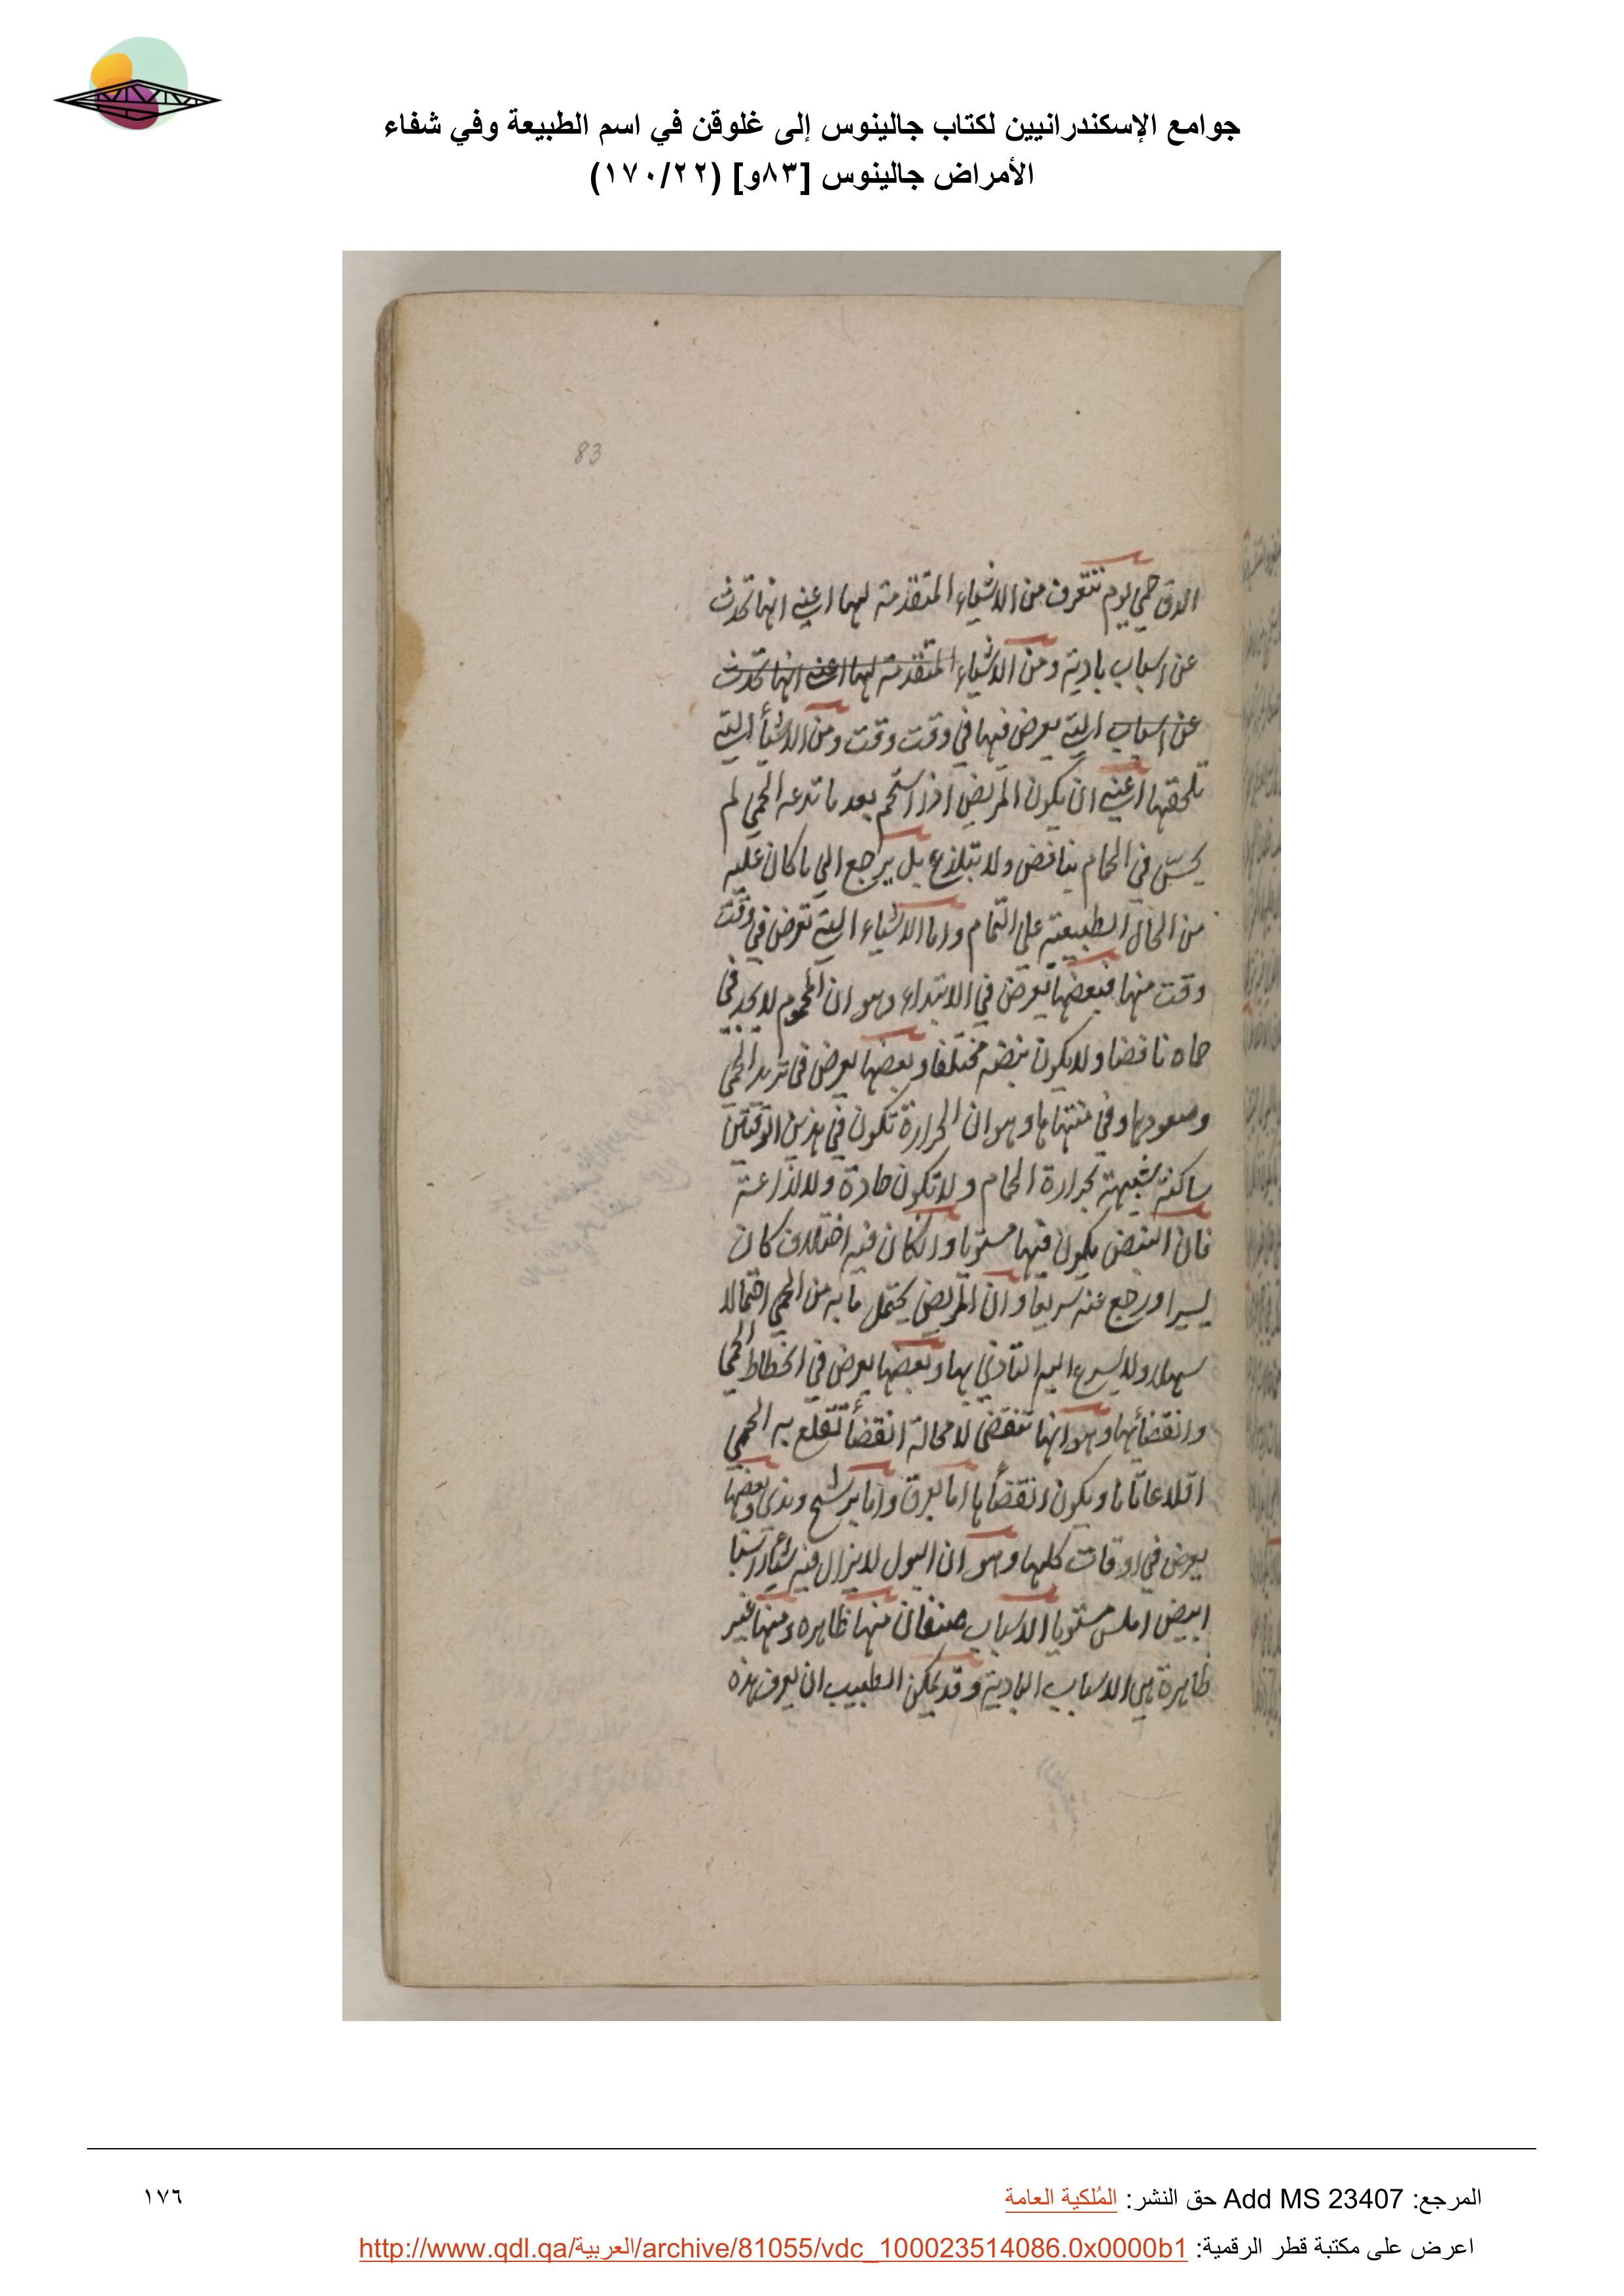 جوامع الإسكندرانيين لكتاب جالينوس إلى غلوقن في اسم الطبيعة وفي شفاء
الأمراض جالينوس [٨٣و] (١٧٠/٢٢)
83
الدق حمى يوم تتعرف من الاشياء المتقدمة لها اعني انها تحدث
عن اسباب بادية ومن الاشياء المتقدمة لها اعني انها تحدث
عن اسباب التي يعرض فيها في وقت وقت ومن الاشيأ التي
تلحقها اعني ان يكون المريض اذا استحم بعد ما تدعه الحمى لم
يحس في الحمام بنافض ولا بتلذع بل يرجع الى ما كان عليه
من الحال الطبيعية على التمام واما الاشياء التي تعرض في وقت
وقت منها فبعضها يعرض في الابتداء وهو ان المحموم لا يجد في
حماه نافضا ولا يكون نبضه مختلفا وبعضها يعرض في تزيد الحمى
وصعودها وفي منتهاها وهو ان الحرارة تكون في هذين الوقتين
ساكنة شبيهة بحرارة الحمام ولا تكون حادة ولا لذاعة
فان النبض يكون فيها مستويا وان كان فيه اختلاف كان
يسيرا ورجع عنه سريعا وان المريض يحتمل ما به من الحمى احتمالا
سهلا ولا يسرع اليه التأذي بها وبعضها يعرض في انحطاط الحمى
وانقضأئها وهو انها تنقضي لا محالة انقضأ تقلع به الحمى
اقلاعا تاما ويكون انقضأها اما بعرق واما برشح وندى وبعضها
يعرض في اوقات كلها وهو ان البول لا يزال فيه
ابيض املس مستويا الاسباب صنفان منها ظاهره ومنها غير
ظاهرة هي الاسباب البادية وقد يمكن الطبيب ان يعرف هذه
المرجع: Add MS 23407 حق النشر: المُلكية العامة
١٧٦
اعرض على مكتبة قطر الرقمية: http://www.qdl.qa/العربية/archive/81055/vdc_100023514086.0x0000b1